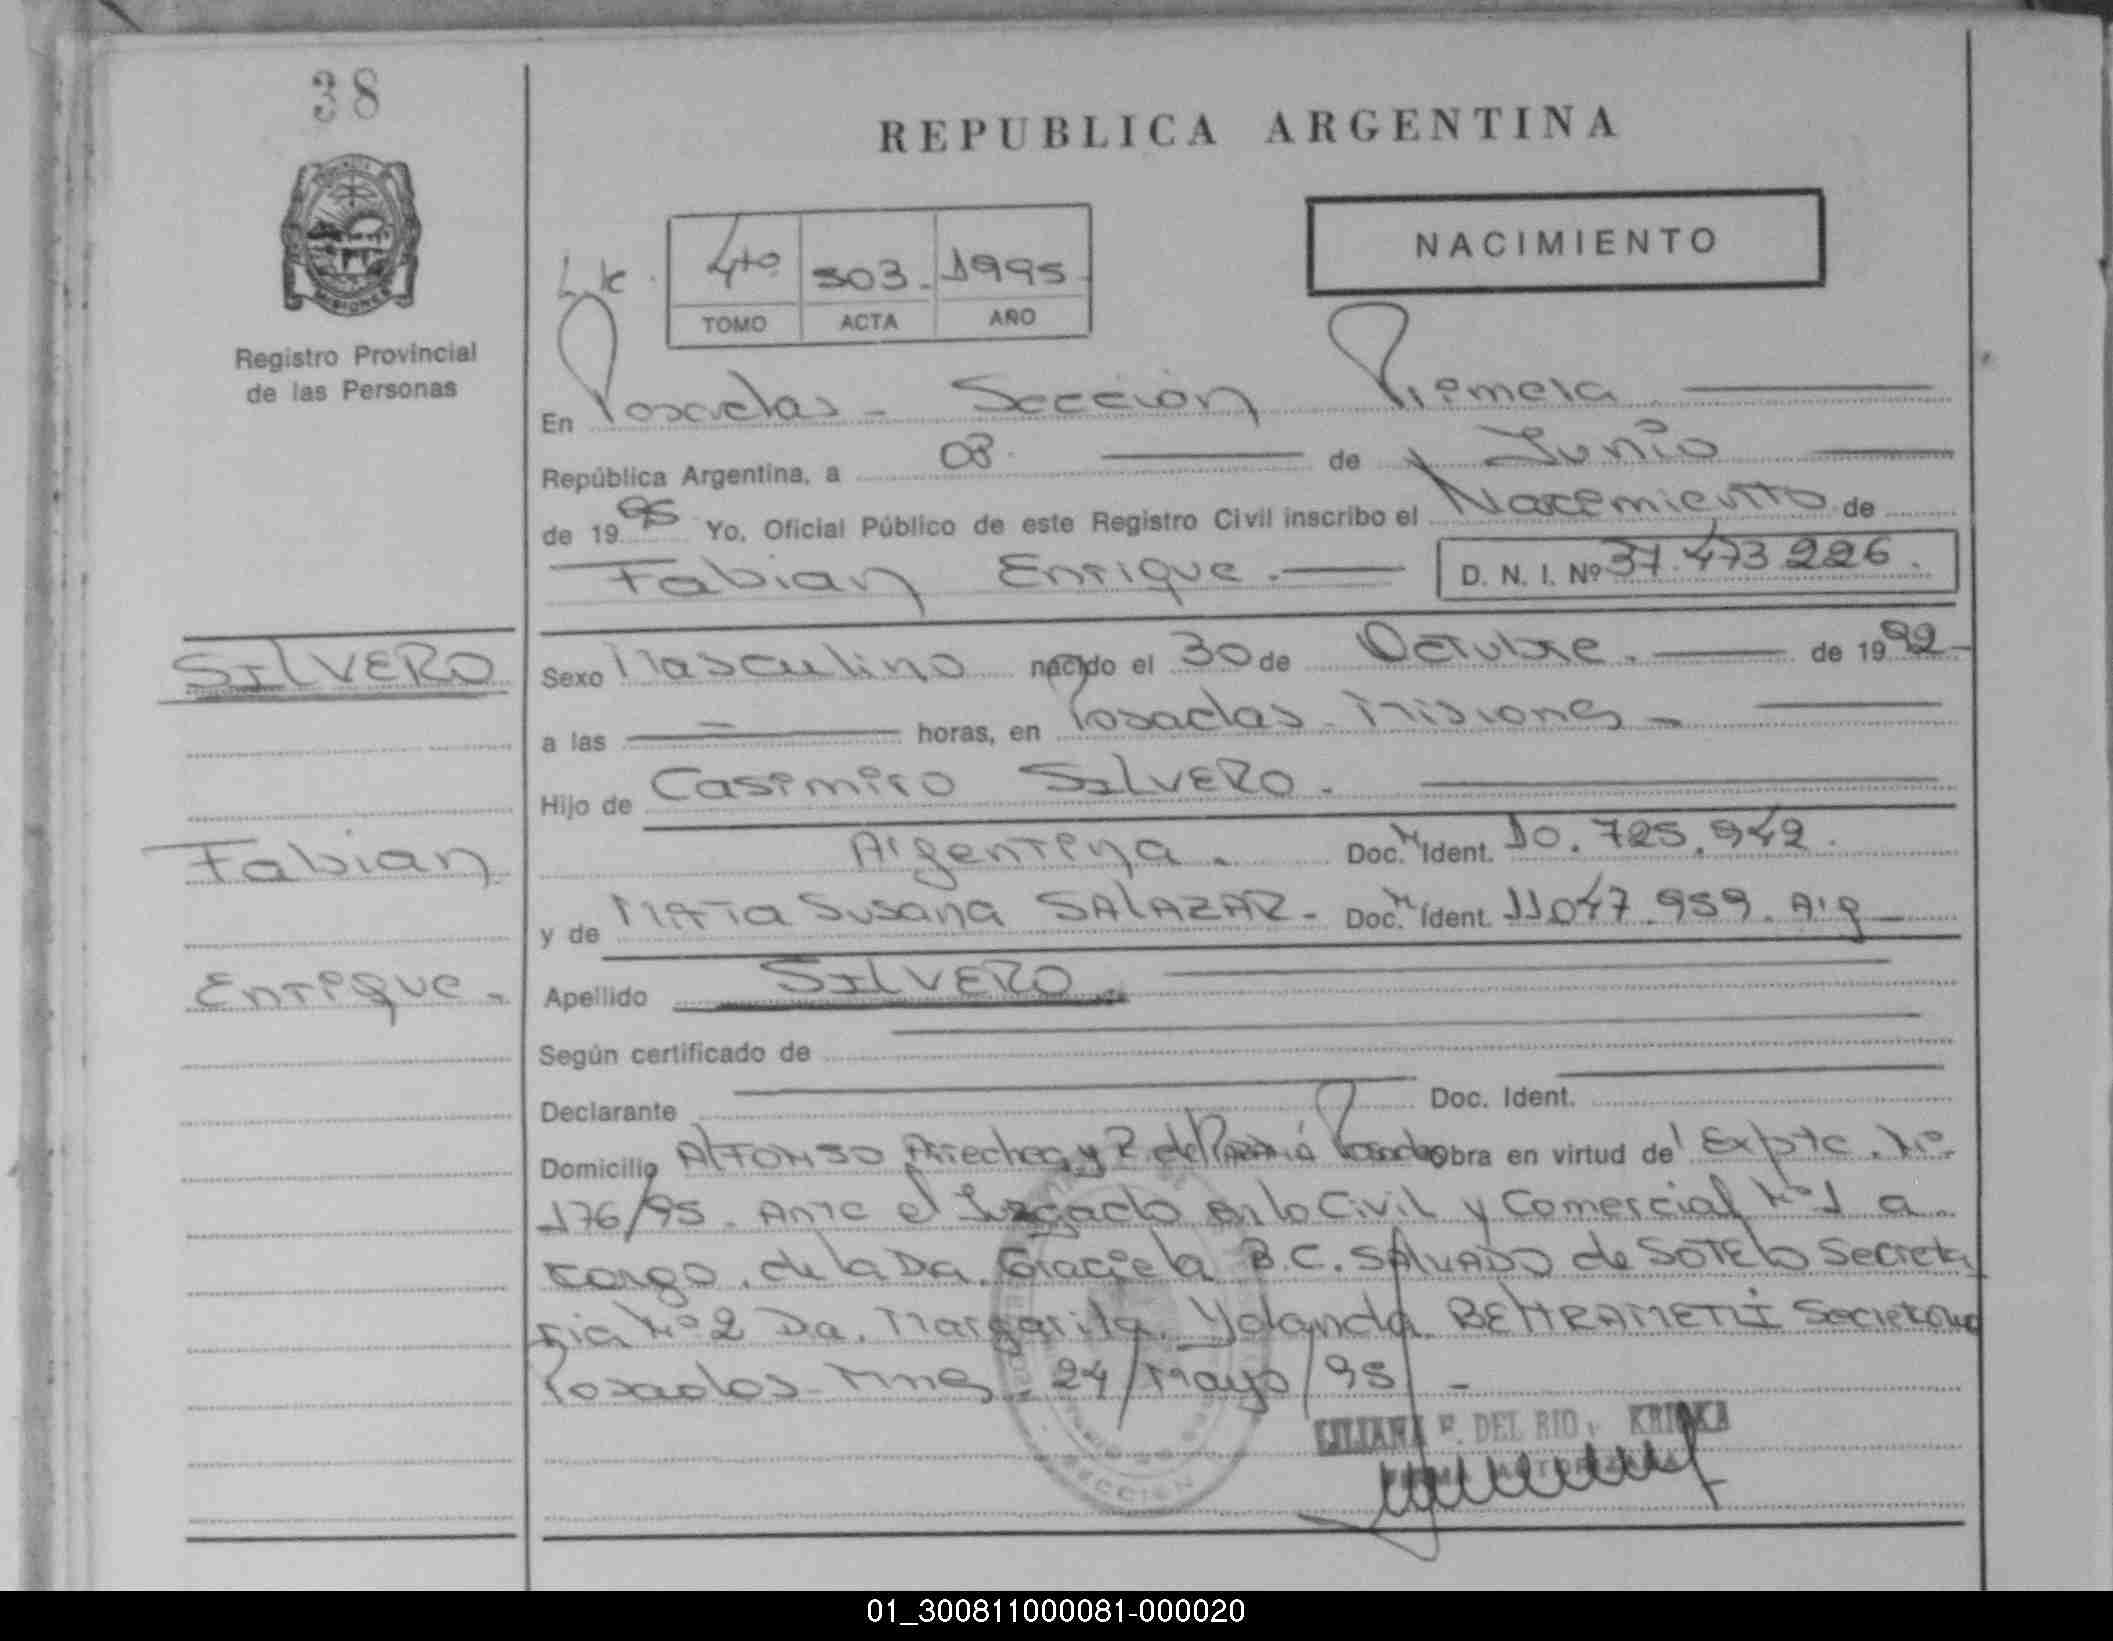 38
REPUBLICA ARGENTINA
NACIMIENTO
4to 503. 1995
TOMO ACTA AÑO
Registro Provincial
de las Personas
En Posadas - Sección Primera
República Argentina, a 08. de Junio
de 1995 Yo, Oficial Público de este Registro Civil inscribo el Nacimiento de
Fabian Enrique. D. N. I. Nº 37.473.226.
SILVERO
Sexo Masculino nacido el 30 de Octubre. de 1992-
a las horas, en Posadas - Misiones -
Hijo de Casimiro SILVERO.
Fabian
Argentina. Doc. Ident. 10.725.942.
y de Maria Susana SALAZAR - Doc. Ident. 11.047.959. Arg
Enrique.
Apellido SILVERO.
Según certificado de
Declarante Doc. Ident.
Domicilio ALFONSO Arrechea y Posadas Obra en virtud de Expte. Nº
176/95. Ante el Juzgado en lo Civil y Comercial Nº1 a
cargo de la Da. Graciela B.C. SALVADO de SOTELO Secreta
ria Nº2 Da. Margarita Yolanda Secretaria
Posadas - Mnes. 24/Mayo/95 -
LILIANA DEL RIO
SECCION
01_300811000081-000020